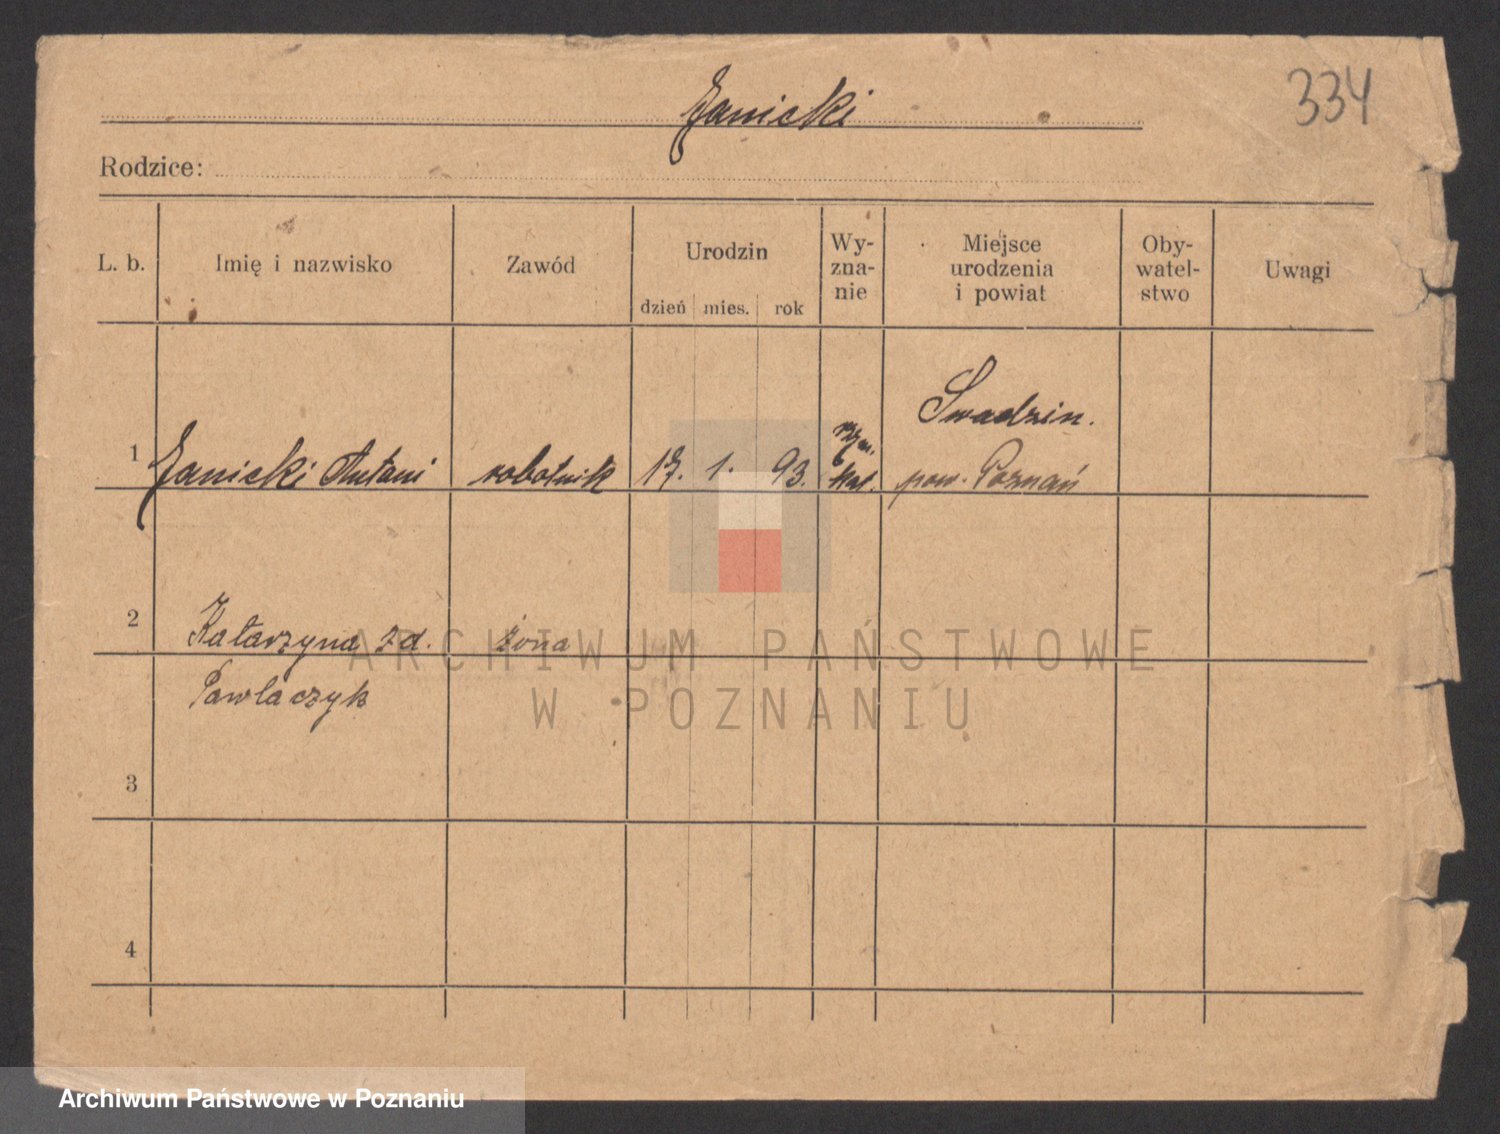 Janicki
334
Rodzice:
L. b. Imię i nazwisko Zawód Urodzin dzień mies. rok Wy-zna-nie Miejsce urodzenia i powiat Oby-watel-stwo Uwagi
Swadzin.
1 Janicki Antoni robotnik 17. 1. 93. rzym. kat. pow. Poznań
2 Katarzyna zd. żona
Pawlaczyk
3
4
ARCHIWUM PAŃSTWOWE
W POZNANIU
Archiwum Państwowe w Poznaniu